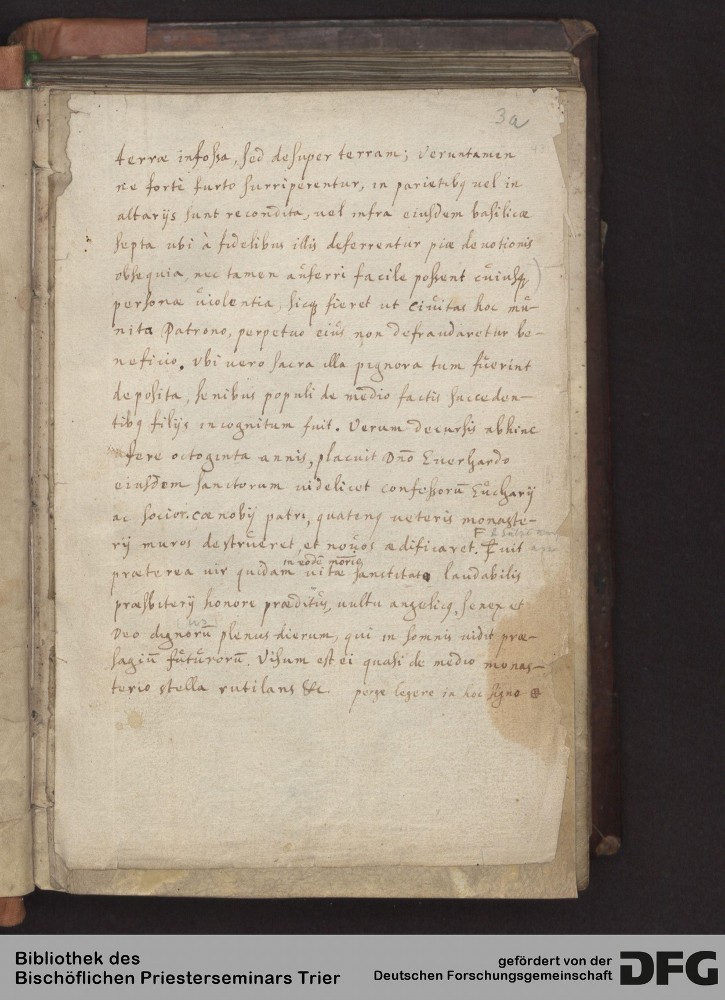 3a
terræ infossa, sed desuper terram; Veruntamen
ne fortè furto surriperentur, in parietibꝫ uel in
altarijs sunt recondita, uel infra eiusdem basilicæ
septa ubi à fidelibus illis deferrentur piæ deuotionis
obsequia, nec tamen aůferri facile possent cůiusqꝫ
personæ ůiolentia, sicqꝫ fieret ut ciůitas hoc mů-
nita Patrono, perpetuo eiůs non defraudaretur be-
neficio. Vbi uero sacra illa pignora tum fůerint
deposita, senibus populi de medio factis succeden-
tibꝫ filijs incognitum fuit. Verum decursis abhinc
fere octoginta annis, placuit Dn̄o Euerhardo
eiusdem sanctorum uidelicet confessorū Eůcharij
ac socior. cœnobij patri, quatenꝫ ueteris monaste-
rij muros destrůeret, et noůos ædificaret. Fuit
in eodē mōrio
præterea uir quidam uitæ sanctitate laudabilis
præsbiterij honore præditůs, uultu angelicꝫ, senex et
Deo dignorū plenus dierum, qui in somnis uidit præ-
sagiū fůtůrorū. Visum est ei quasi de medio monas-
terio stella rutilans &c. perge legere in hoc signo ⊕
Bibliothek des
Bischöflichen Priesterseminars Trier
gefördert von der
Deutschen Forschungsgemeinschaft
DFG